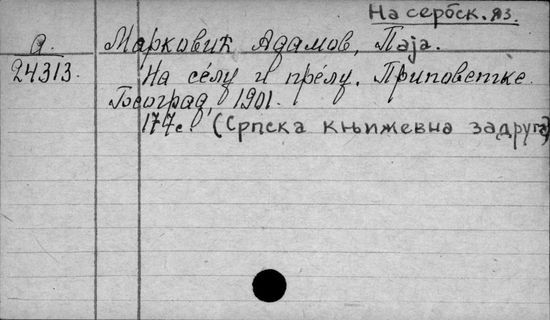 На сербск. яз.
а.
24313.
Марковић Адамов, Паја.
На се́лу и пре́лу. Приповетке.
Београд, 1901.
177с. (Српска књижевна задруга)